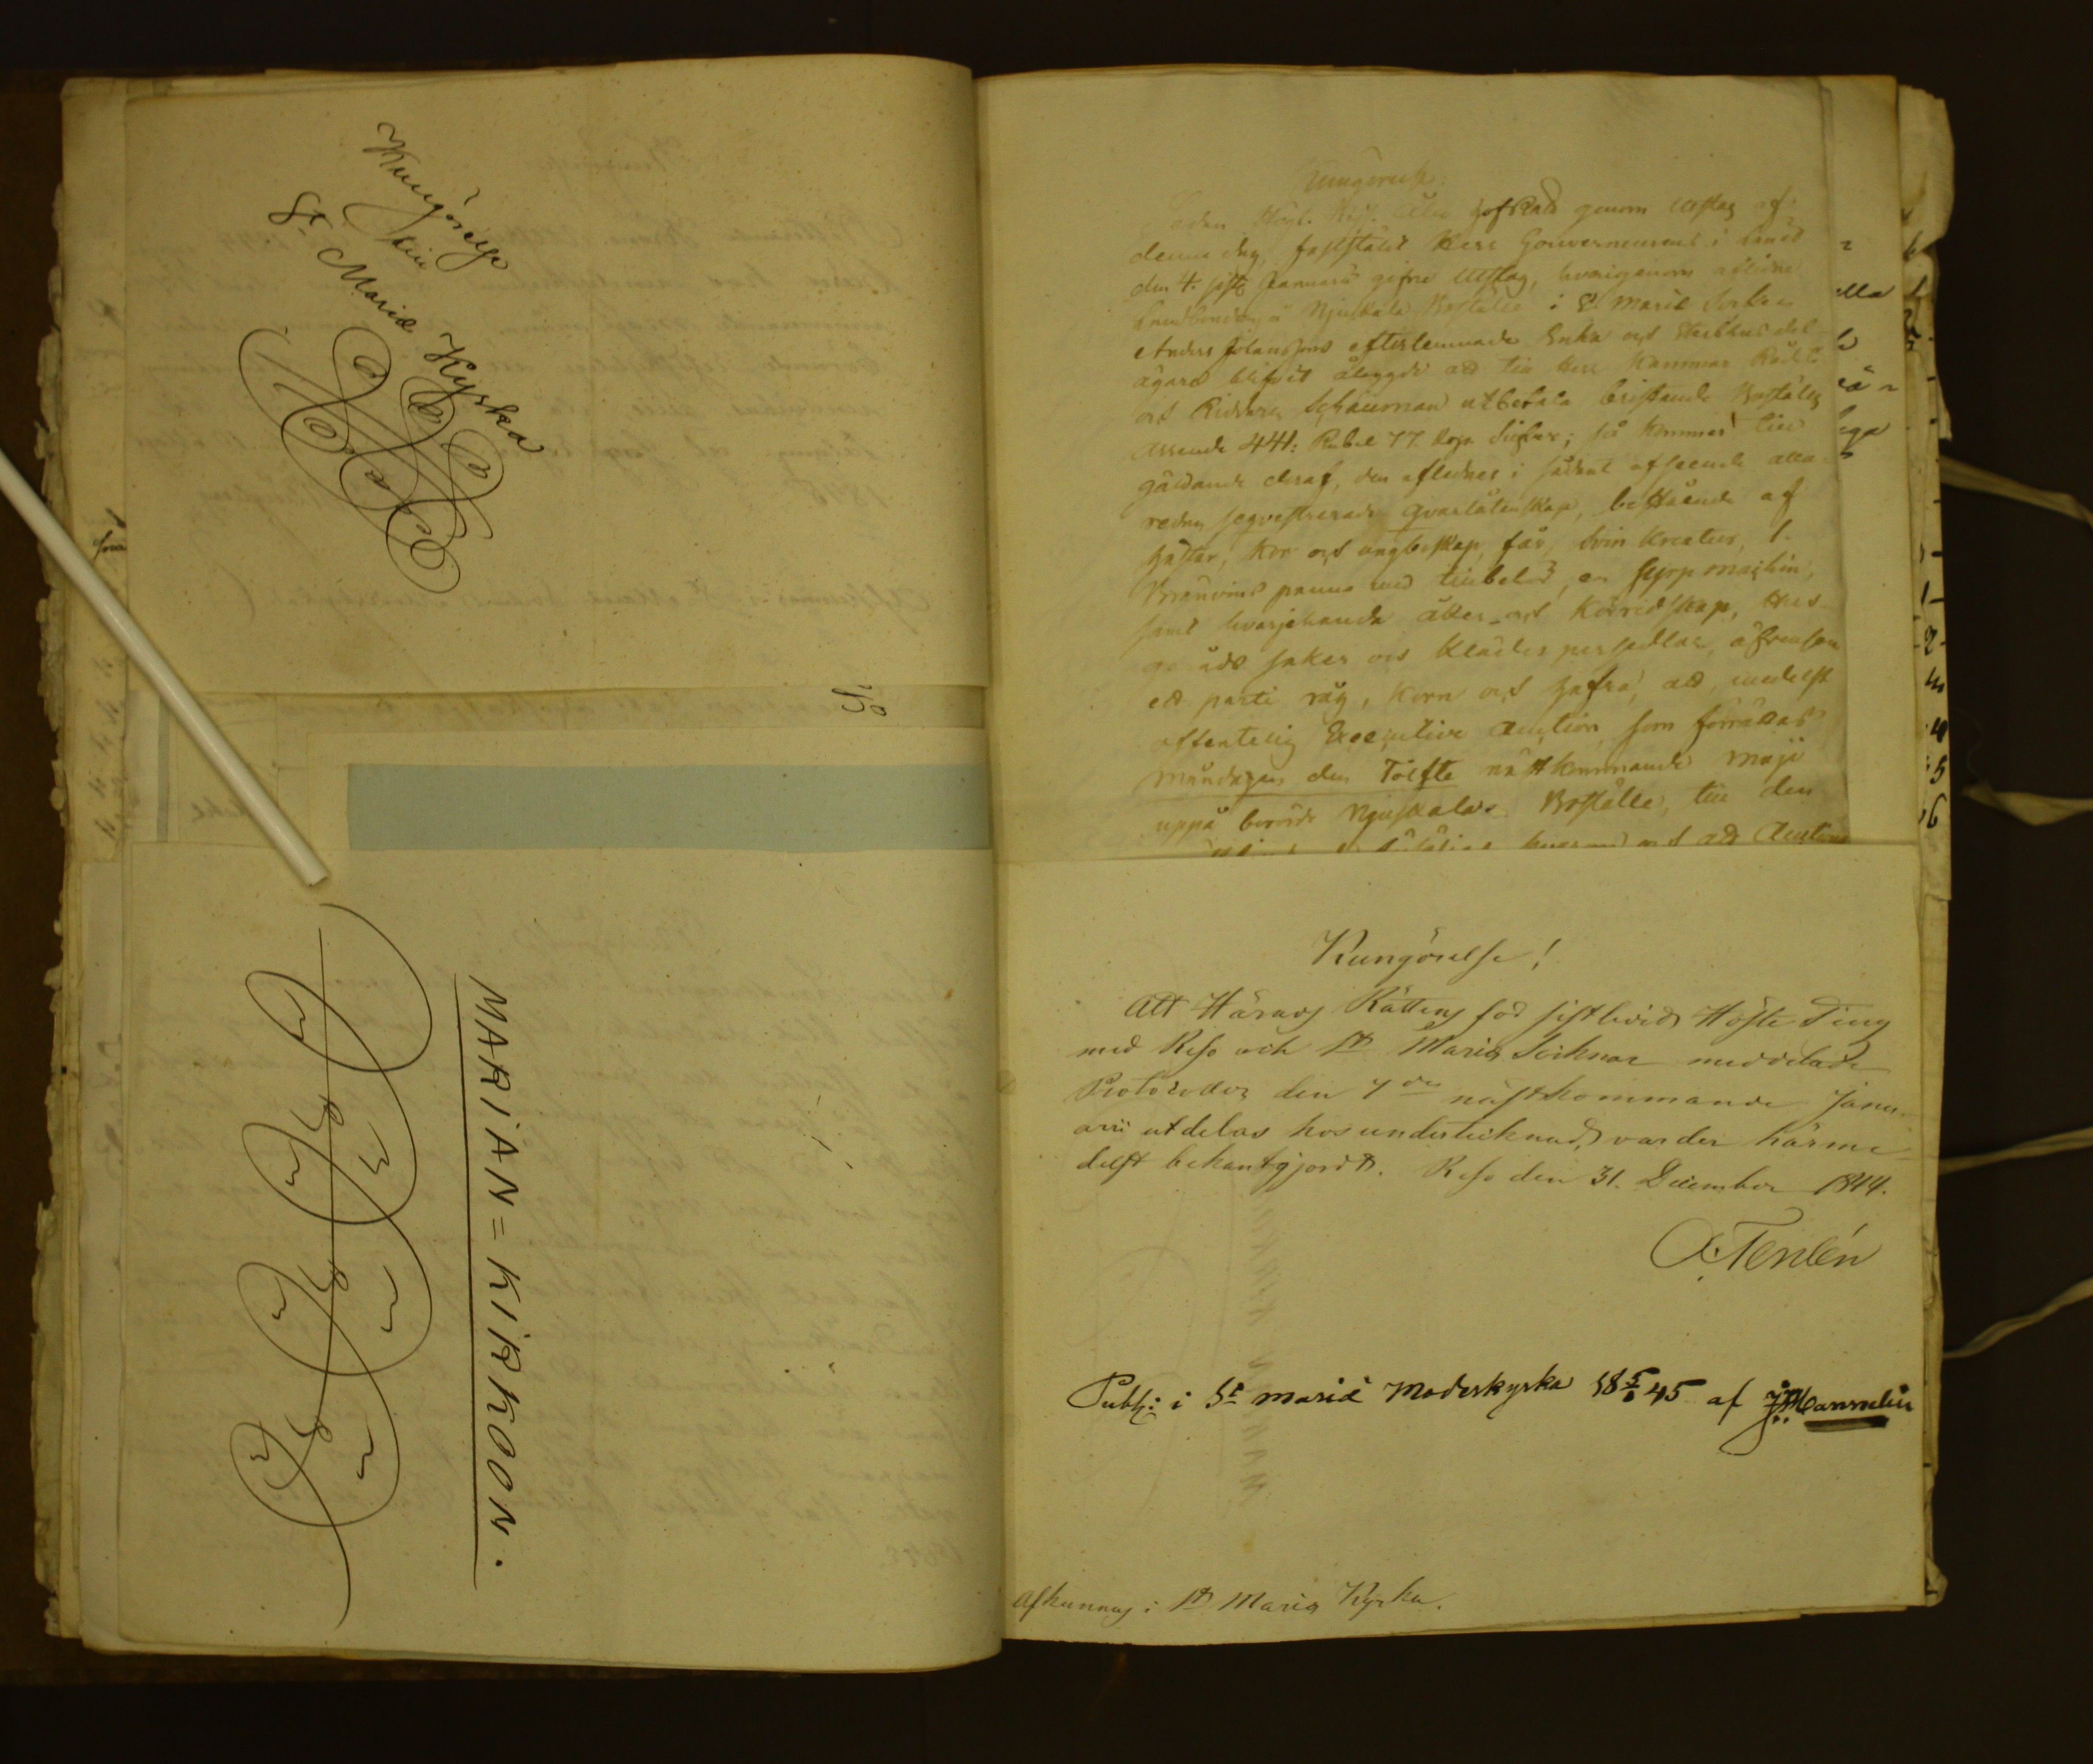 Kungörelse
till
St Mariæ Kyrka
MARIAN = KIRKOON.
Kungörelse
Hofrätt genom Utslag af
denna dag, fastställt Herr Gouverneurens i Länet
den 4. sistl. Januarii gifne Utslag, hvarigenom aflidne
Landbonden å Njuskala Boställe i St Mariæ Socken
Anders Johanssons efterlemnade Enka och Sterbhus del-
ägare blifvit ålagde att till Herr Kammar Rådet
och Riddaren Schauman utbetala bristande
Arrende 441: Rubel 77. Kop. Silfver; så kommer till
gäldande deraf, den aflednes i sådant afseende alla-
redan seqvestrerade qvarlåtenskap, bestående af
hästar, kor och ungboskap, får, svin kreatur, 1.
Bränvins panna med tillbehör, en
samt hvarjehanda åker- och körredskap, Hus-
geråds saker och klädes persedlar, äfvensom
ett parti råg, korn och hafra, att medelst
offentelig Executive Auction som förrättas
måndagen den Tolfte nästkommande Maji
uppå berörde Njuskala Boställe, till den
och att Auctions
Kungörelse!
Att Härads Rättens för sistledit Höste Ting
med Reso och St Mariæ Socknar meddelade
Protocoller den 7de nästkommande Janu-
arii utdelas hos undertecknad, varder härme-
delst bekantgjordt. Reso den 31. December 1844.
A. Terlén
Publ: i St Mariæ Moderkyrka 18 5/1 45 af
Afkunnas i St Mariæ Kyrka.